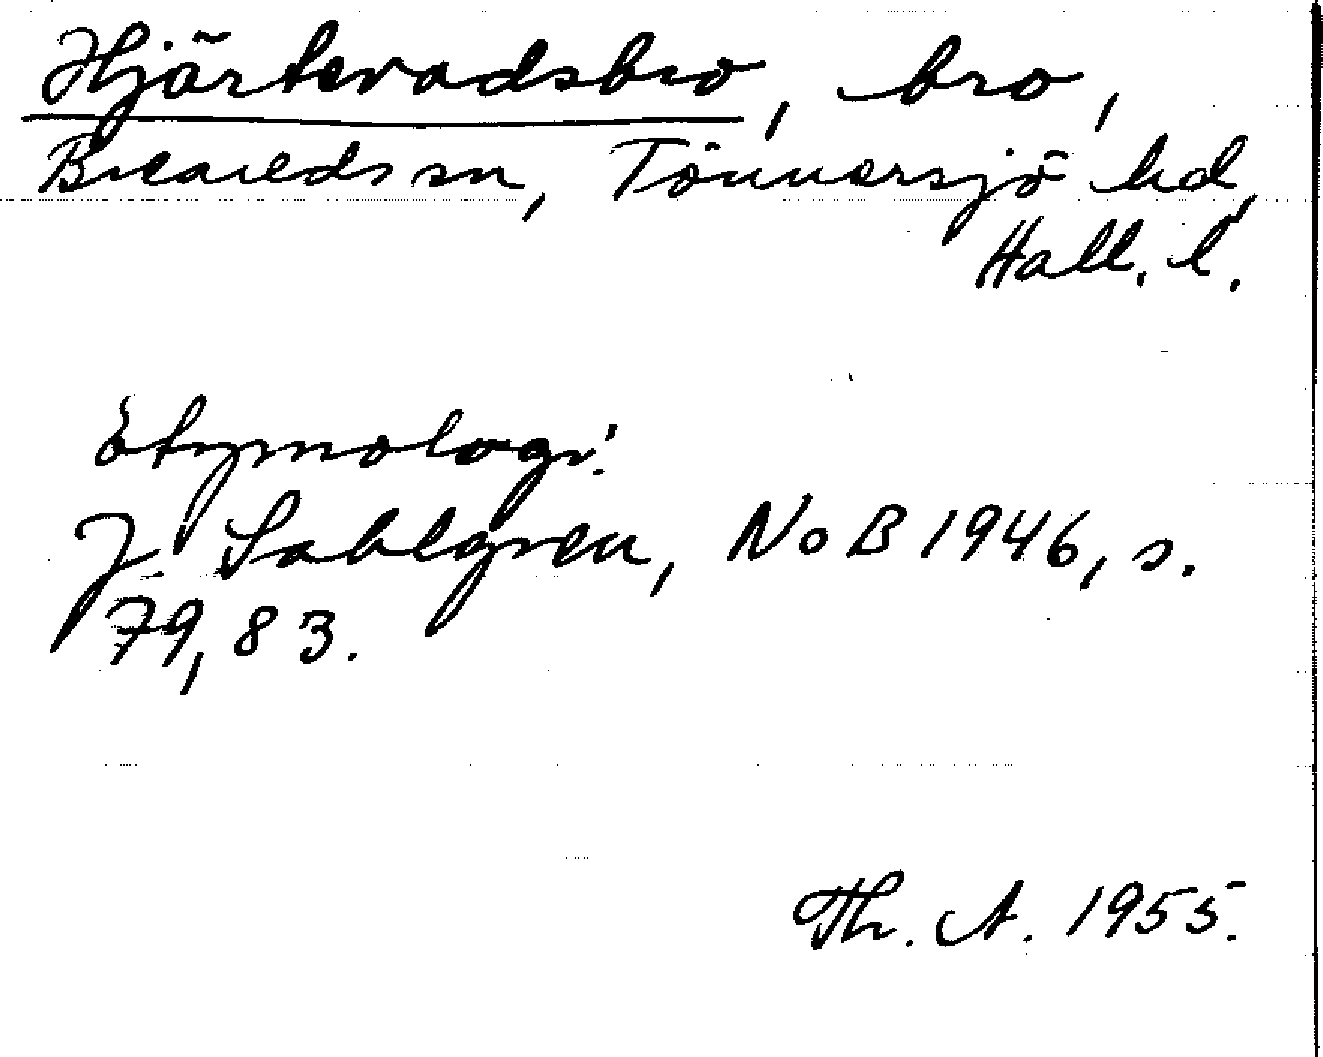 Hjärtevadsbro, bro,
Breareds sn, Tönnersjö hd,
Hall. l.
Etymologi:
J. Sahlgren, NoB 1946, s.
79, 83.
Th. A. 1955.